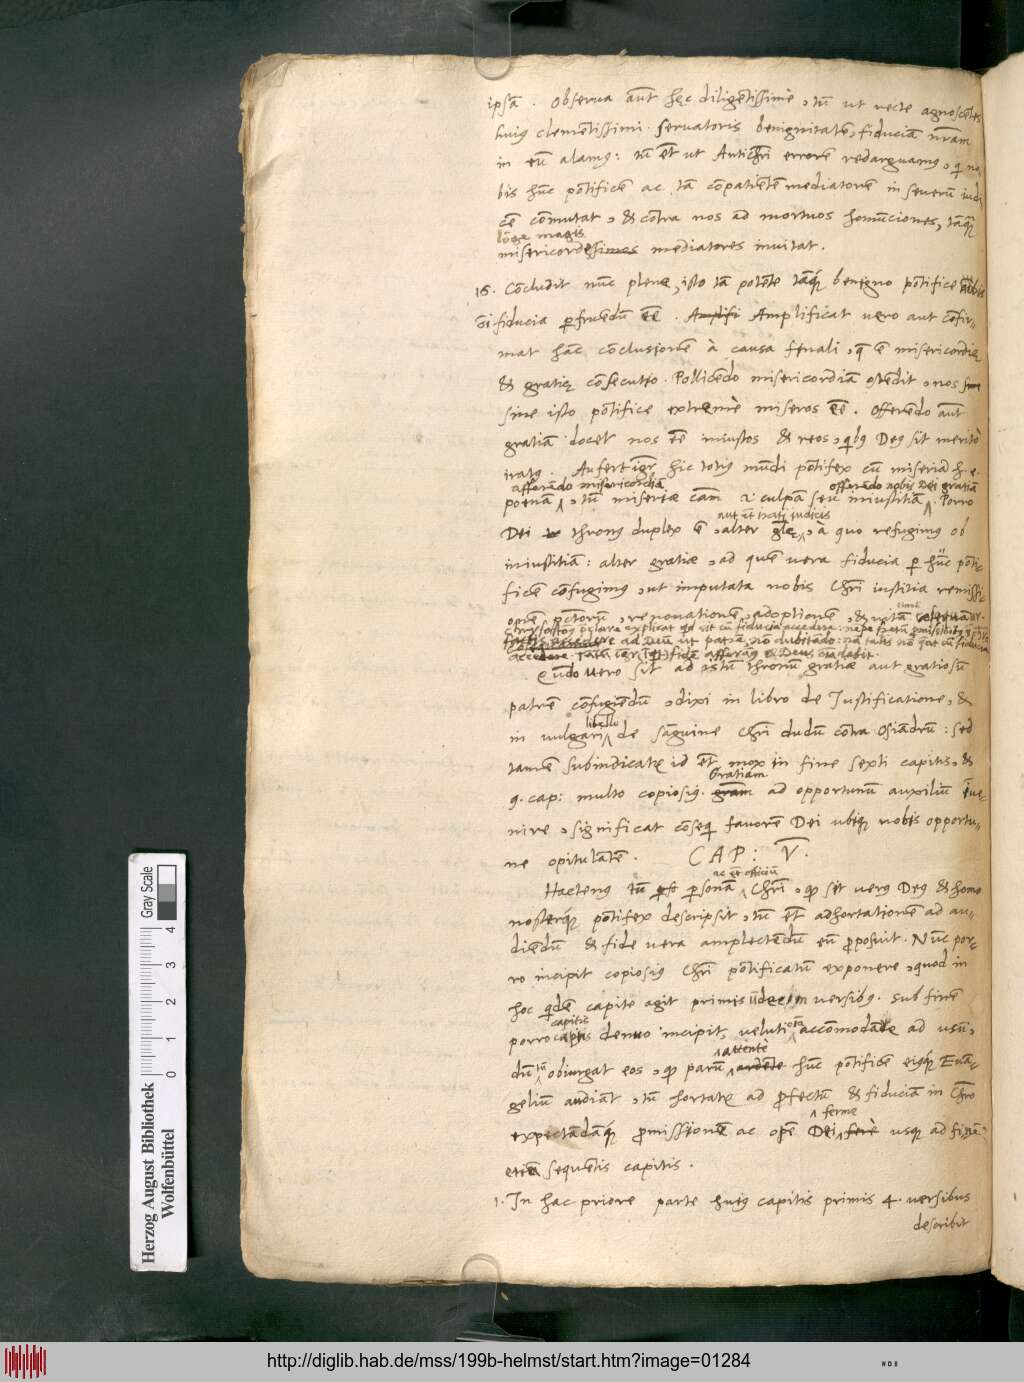 ipsā. Observa aūt hęc diligētissimè, tū ut recte agnoscētes
huius clemētissimi servatoris benignitatē, fiduciā nr̄am
in eū alamus: tū ēt ut Antichr̄i errorē redarguamus, qi no-
bis hūc pōtificē ac tā cōpatiētē mediatorē in severū iudi-
cē cōmutat, & cōtra nos ad mortuos homūciones, tāq̄
lōge magis
misericordes mediatores invitat.
16. Cōcludit nūc plena, isto tā potēte tāq́ benigno pōtifice nobis
fiducia p̄fruēdū eē. Amplifi Amplificat vero aut cōfir-
mat hāc cōclusionē à causa finali, q̄ ē misericordię
& gratię cōsecutio. Pollicēdo misericordiā ostēdit, nos sine
sine isto pōtifice extremè miseros eē. Offerēdo aūt
gratiā docet nos eē iniustos & reos, qibus Deus sit meritò
iratus. Aufert igr̄ hic totius mūdi pōtifex cū miseriā h. e.
afferēdo misericordiā offerēdo nobis Dei gratiā
poenā, tū miseriae cām culpā seu iniustitiā. Porro
aut ēt irati iudicis
Dei thronus duplex ē, alter glę, à quo refugimus ob
iniustitiā: alter gratiae, ad quē vera fiducia p̄ hūc pōti-
ficē cōfugimus, ut imputata nobis Chr̄i iustitia remissi-
onē pctorū, renovationē, adoptionē, & vitā
accedere
Qūdo vero sit ad istū thronū gratiae aut gratiosū
patrē cōfugiēdū, dixi in libro de Iustificatione, &
libello
in vulgari de sāguine Chr̄i dudū cōtra Osiādrū: sed
tamē subindicatr id ēt mox in fine sexti capitis, &
Gratiam
9. cap: multo copiosius. grām ad opportunū auxiliū īve-
nire, significat cōseqi favorē Dei ubiq̄ nobis opportu-
ne opitulātē. CAP: V.
ac ēt officiū
Hactenus tū p̄sonā Chr̄i, qp sit verus Deus & homo
nosterq́ pōtifex descripsit, tū ēt adhortationē ad au-
diēdū & fide vera amplectēdū eū p̄posuit. Nūc por-
ro incipit copiosius Chr̄i pōtificatū exponere, quod in
hoc qidē capite agit primis ūdecim versibus. sub finē
capitis
porro capitis denuo incipit, veluti oīa accōmodās ad usū,
attentè
dū tū obiurgat eos, qp parū ardēte hūc pōtificē eiusq́ Evā-
geliū audiāt, tū hortatr ad p̄fectū & fiduciā in Chr̄o
ferme
expectādāq́ p̄missionē ac opē Dei ferè usq̄ ad finē
etiā sequētis capitis.
1. In hac priore parte huius capitis primis 4. versibus
describit
Herzog August Bibliothek
Wolfenbüttel
Gray Scale
0 1 2 3 4
http://diglib.hab.de/mss/199b-helmst/start.htm?image=01284
WDB